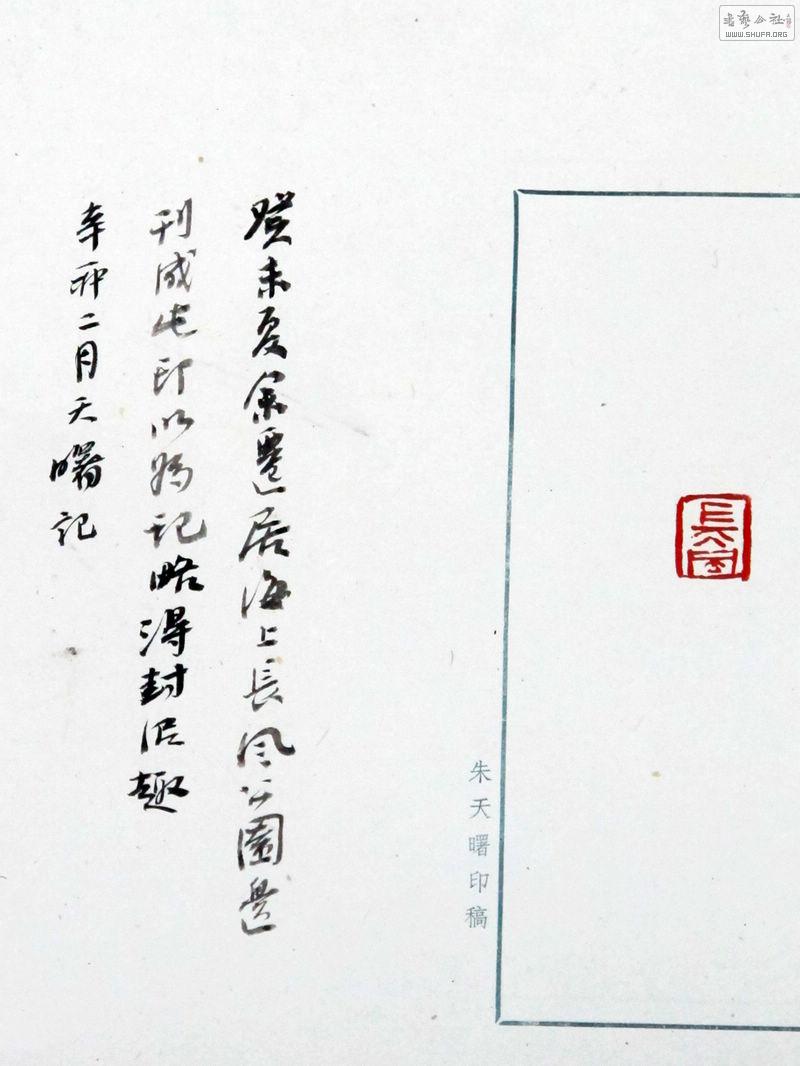 癸未夏余遷居海上長風公園邊
刊成此印以為記略得封泥趣
辛卯二月天曙記
朱天曙印稿
書藝公社
WWW.SHUFA.ORG